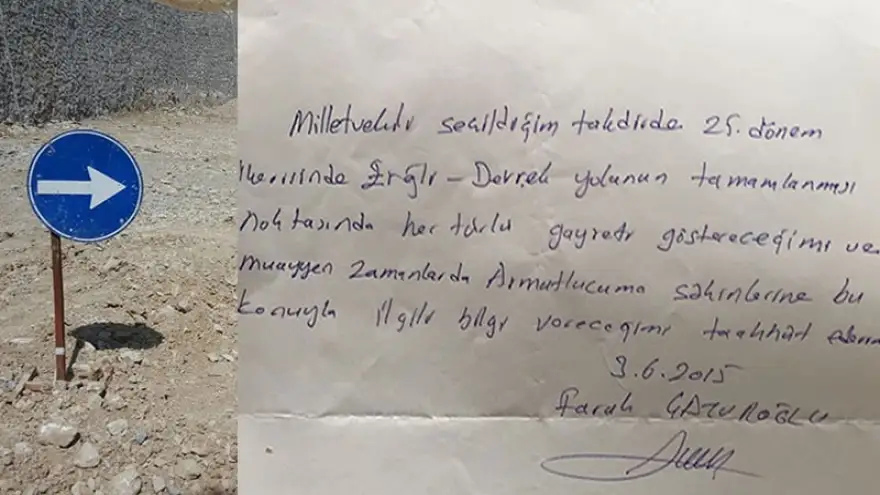 Milletvekili seçildiğim takdirde 25. dönem
içerisinde Ereğli - Devrek yolunun tamamlanması
noktasında her türlü gayreti göstereceğimi ve
muayyen zamanlarda Armutlucuma sakinlerine bu
konuyla ilgili bilgi vereceğimi taahhüt ederim
3.6.2015
Faruk ÇATUROĞLU